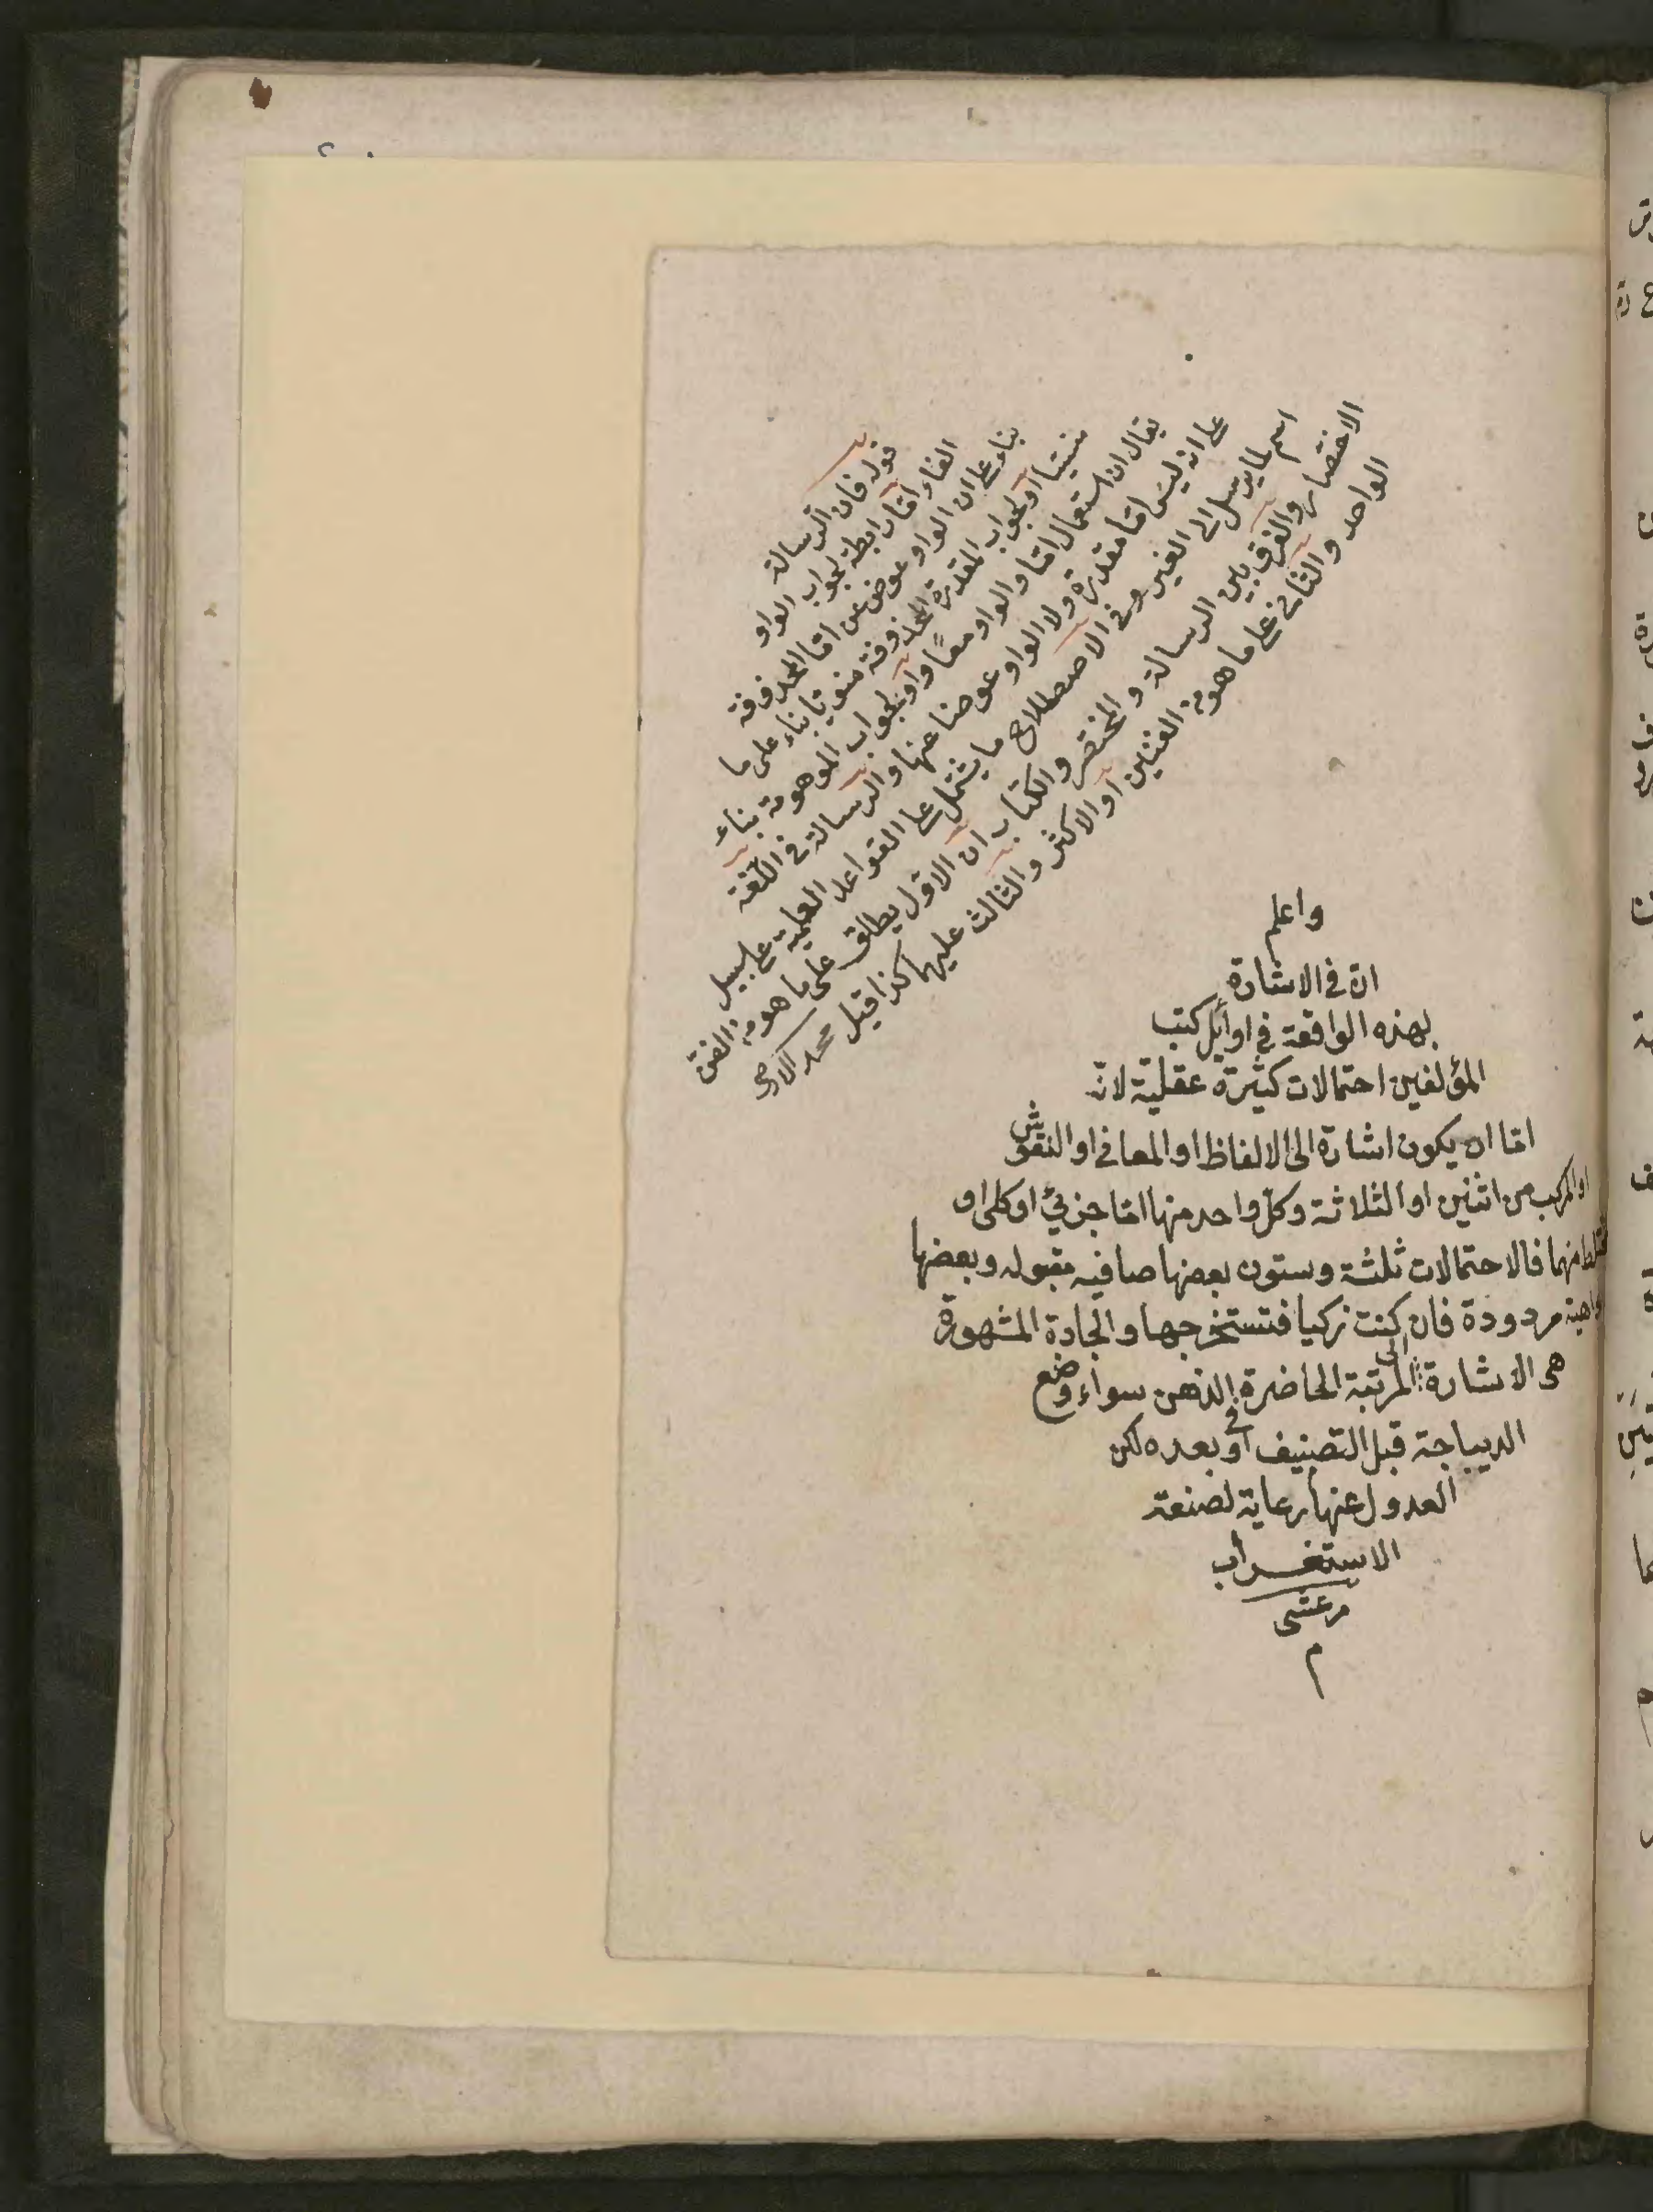 قوله فان الرسالة
الفاء اما رابطة لجواب الواو
بناء على ان الواو عوض عن اما المحذوفة
منسيّا او لجواب المقدرة المحذوفة منويّا بناء على ما
يقال ان استعمال اما والواو معًا واو لجواب الموهومة بناء
على انه ليس اما مقدرة ولا الواو عوضا عنها والرسالة في اللّغة
اسم لما يرسل الى الغير وفي الاصطلاح ما يشتمل على القواعد العلمية على سبيل
الاختصار والفرق بين الرسالة والمختصر والكتاب ان الاول يطلق على ما هو من الفن
الواحد والثاني على ما هو من الفنين او الاكثر والثالث عليهما كذا قيل محمد
واعلم
انّ في الاشارة
بهذه الواقعة في اوايل كتب
المؤلفين احتمالات كثيرة عقليّة لانّه
امّا ان يكون اشارة الى الالفاظ او المعاني او النقوش
او المركب من اثنين او الثلاثة وكلّ واحد منها امّا جزئي او كلى او
مختلط منهما فالاحتمالات ثلثة وستون بعضها صافيه مقبوله وبعضها
واهية مردودة فان كنت زكيا فتستخرجها والجادة المشهورة
هى الاشارة الى المرتبة الحاضرة في الذهن سواء وضع
الديباجة قبل التصنيف او بعده لكن
العدول عنها رعاية لصنعة
الاستغراب
مرعشى
م